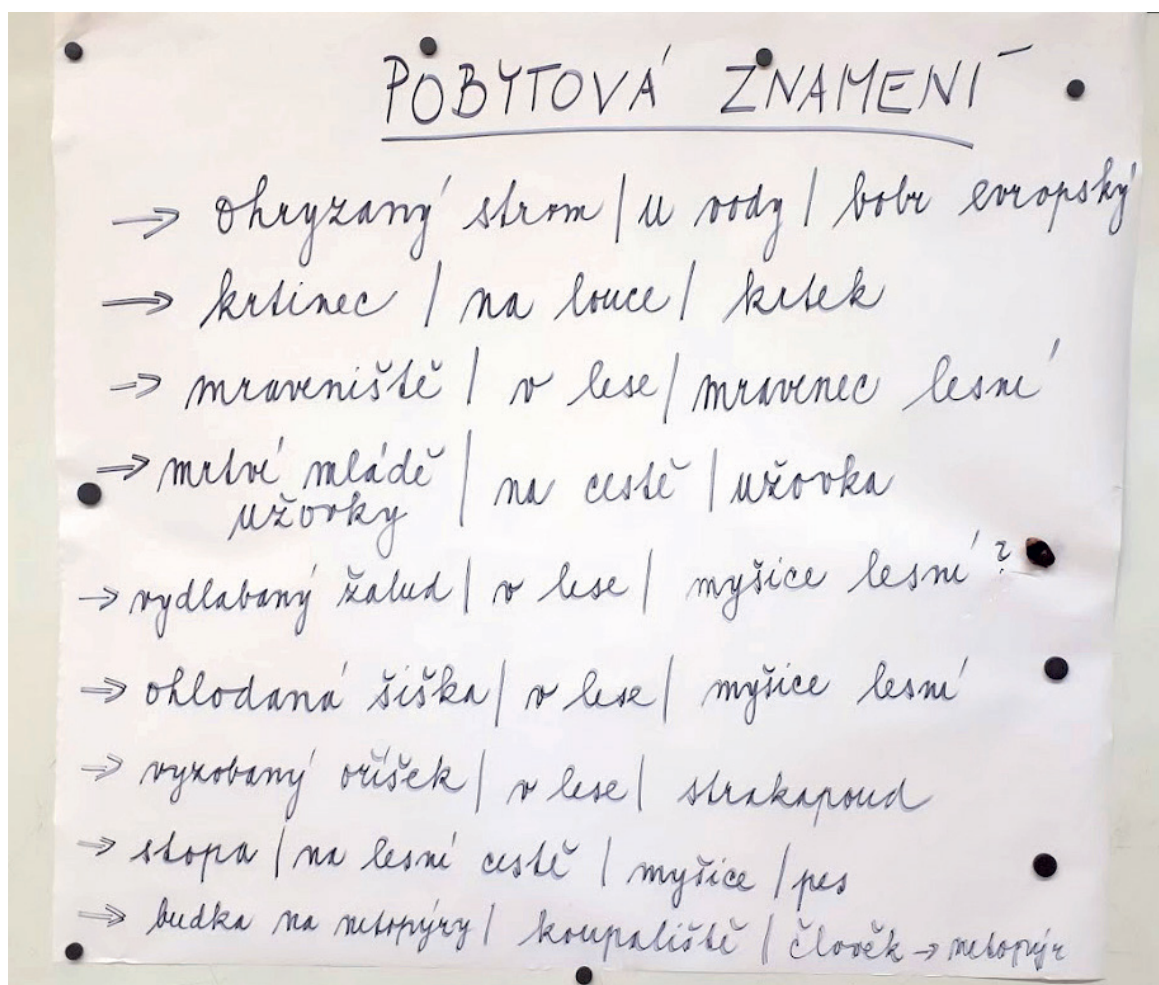 POBYTOVÁ ZNAMENÍ
→ ohryzaný strom | u vody | bobr evropský
→ krtinec | na louce | krtek
→ mraveniště | v lese | mravenec lesní
→ mrtvé mládě | na cestě | užovka
užovky
→ vydlabaný žalud | v lese | myšice lesní ?
→ ohlodaná šiška | v lese | myšice lesní
→ vyzobaný oříšek | v lese | strakapoud
→ stopa | na lesní cestě | myšice | pes
→ budka na netopýry | koupaliště | člověk → netopýr